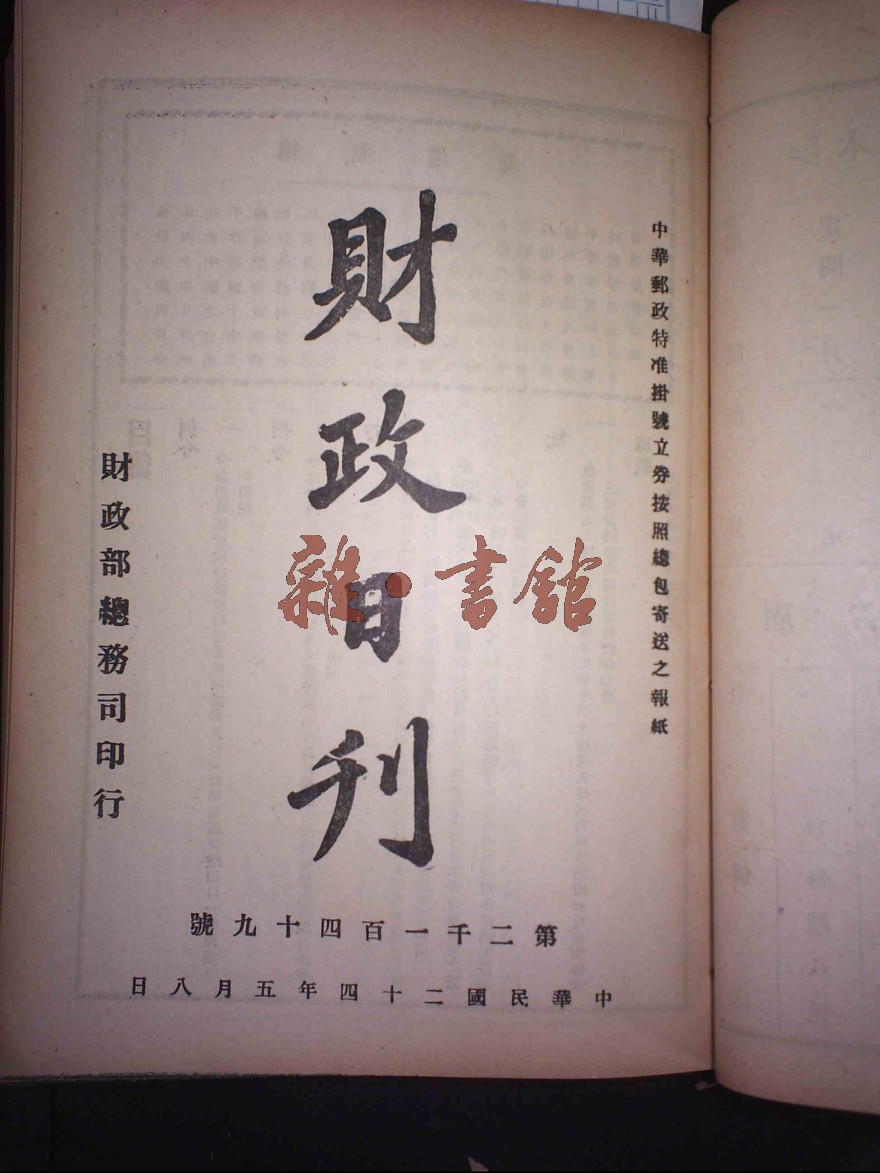 中華郵政特准掛號立劵按照總包寄送之報紙
財政日刊
財政部總務司印行
第二千一百四十九號
中華民國二十四年五月八日
雜·書舘